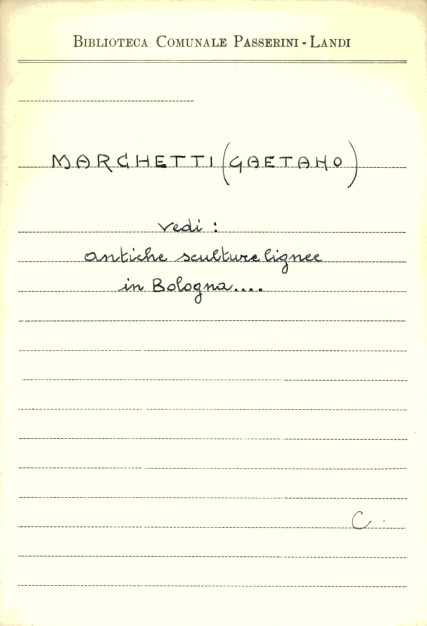 BIBLIOTECA COMUNALE PASSERINI - LANDI
MARCHETTI (GAETANO)
vedi :
antiche sculture lignee
in Bologna....
C.